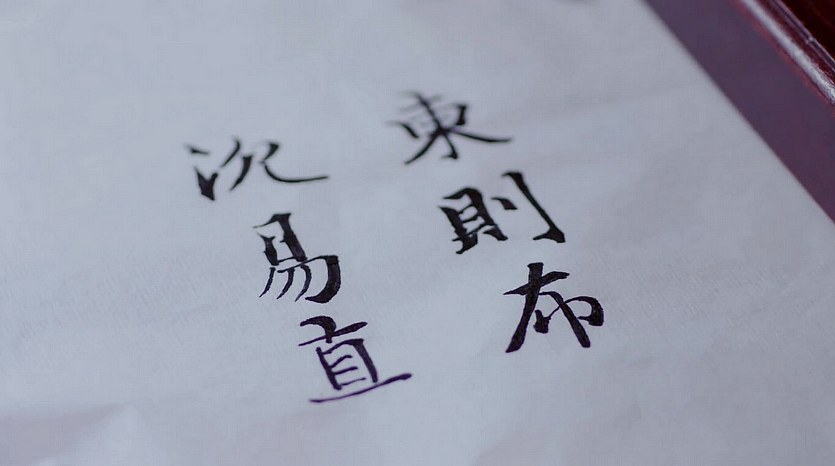 東則布
沉易直